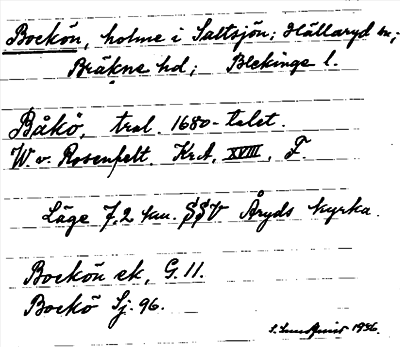 Bockön, holme i Saltsjön; Hällaryd sn;
Bräkne hd; Blekinge l.
Båkö, trol. 1680-talet.
W. v. Rosenfelt. Krt. XVIII, F.
Läge 7,2 km. SSV Åryds kyrka.
Bockön ek, G. 11.
Bockö Sj. 96.
1936.